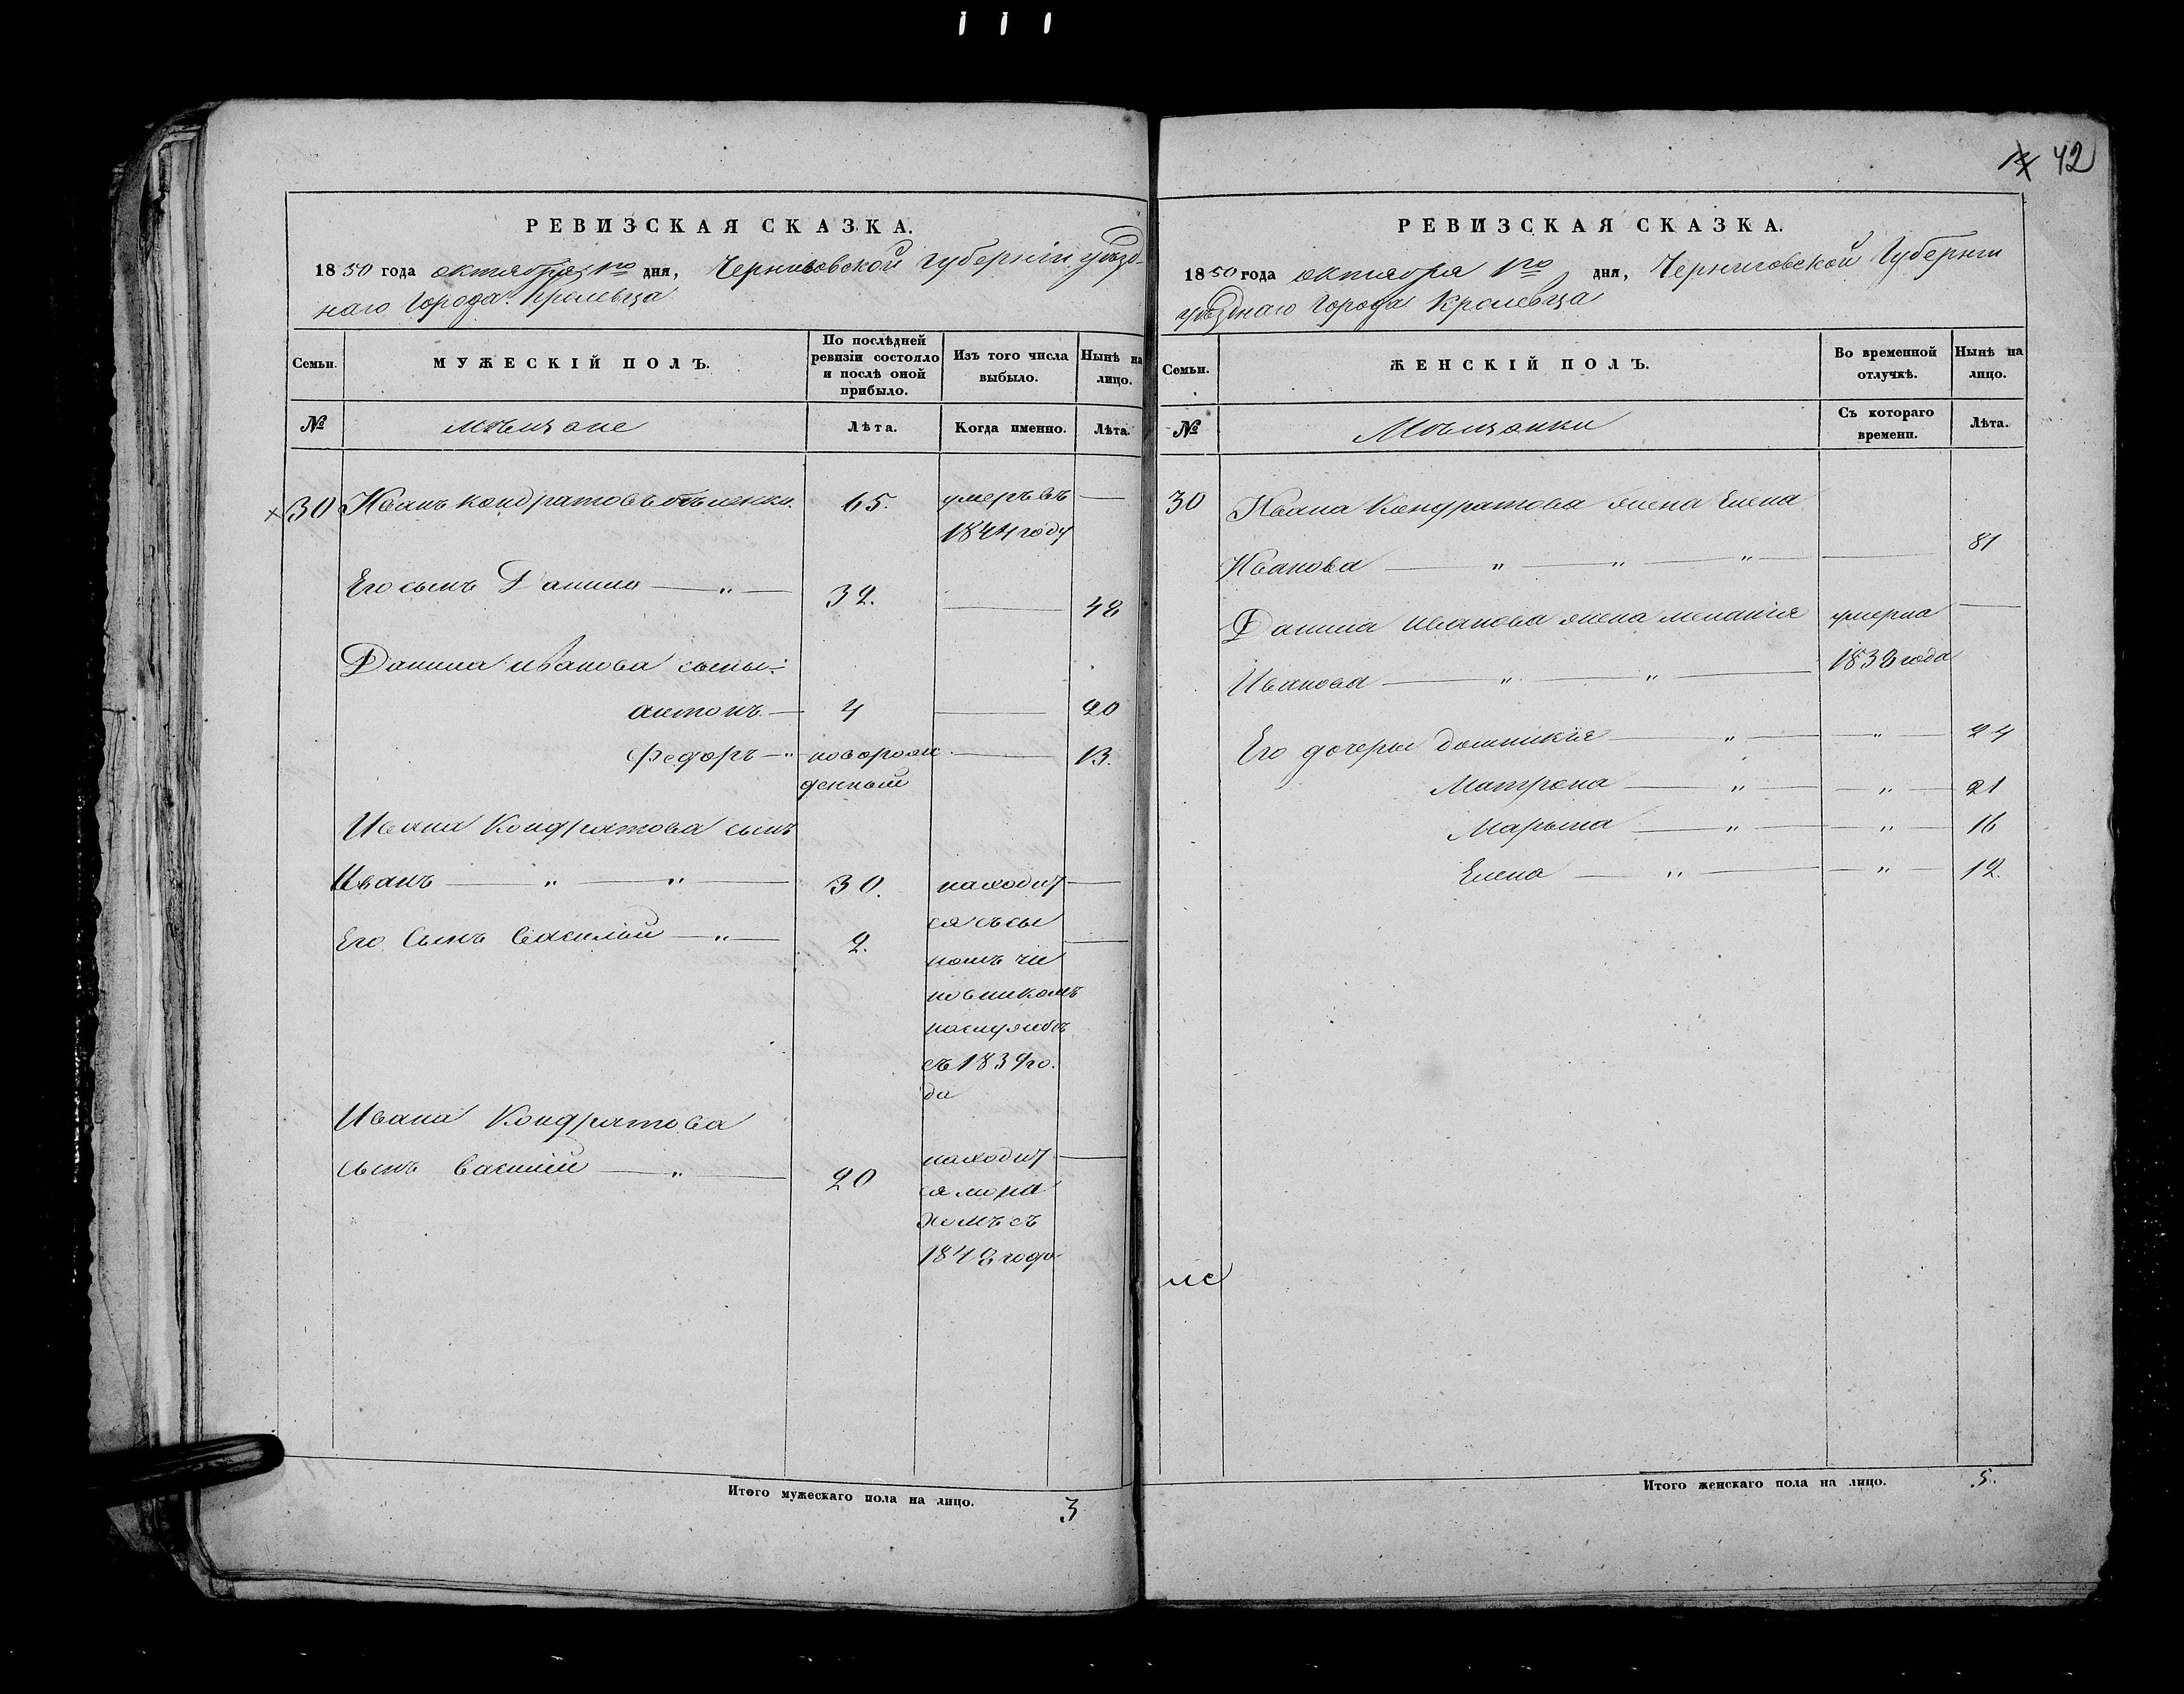 42
РЕВИЗСКАЯ СКАЗКА.
1850 года октября 1го дня, Черниговской Губерніи уѣзд-
наго Города Кролевца
Семьи.
МУЖЕСКІЙ ПОЛЪ.
По послѣдней ревизіи состояло и послѣ оной прибыло.
Изъ того числа выбыло.
Нынѣ на лицо.
№
мѣщане
Лѣта.
Когда именно.
Лѣта.
30 Иванъ кондратовъ 65. умеръ въ —
1844 году
Его сынъ Данило — " — 32. — 48
Данила иванова сыны:
антонъ — 4 — 20
Федоръ — " новорож — 13.
денный
Ивана Кондратова сынъ
Иванъ — " — " — 30. находит —
Его Сынъ Василій — " — 2. ся съ сы —
номъ чи
новникомъ
наслужбѣ
съ 1839 го.
да
Ивана Кондратова
сынъ василій — " — 20 находит —
ся мона
хомъ съ
1848 года
Итого мужескаго пола на лицо. 3
РЕВИЗСКАЯ СКАЗКА.
1850 года октября 1го дня, Черниговской Губерніи
уѣзднаго Города Кролевца
Семьи.
ЖЕНСКІЙ ПОЛЪ.
Во временной отлучкѣ.
Нынѣ на лицо.
№
Мѣщанки
Съ котораго времени.
Лѣта.
30 Ивана Кондратова жена Елена
Иванова — " — " — " — — 81
Данила иванова жена меланія умерла —
Иванова — " — " — 1838 года
Его дочеры домникія — " — — " — 24
Матрона — " — — " — 21
Марына — " — — " — 16
Елена — " — — " — 12.
ле
Итого женскаго пола на лицо. 5.